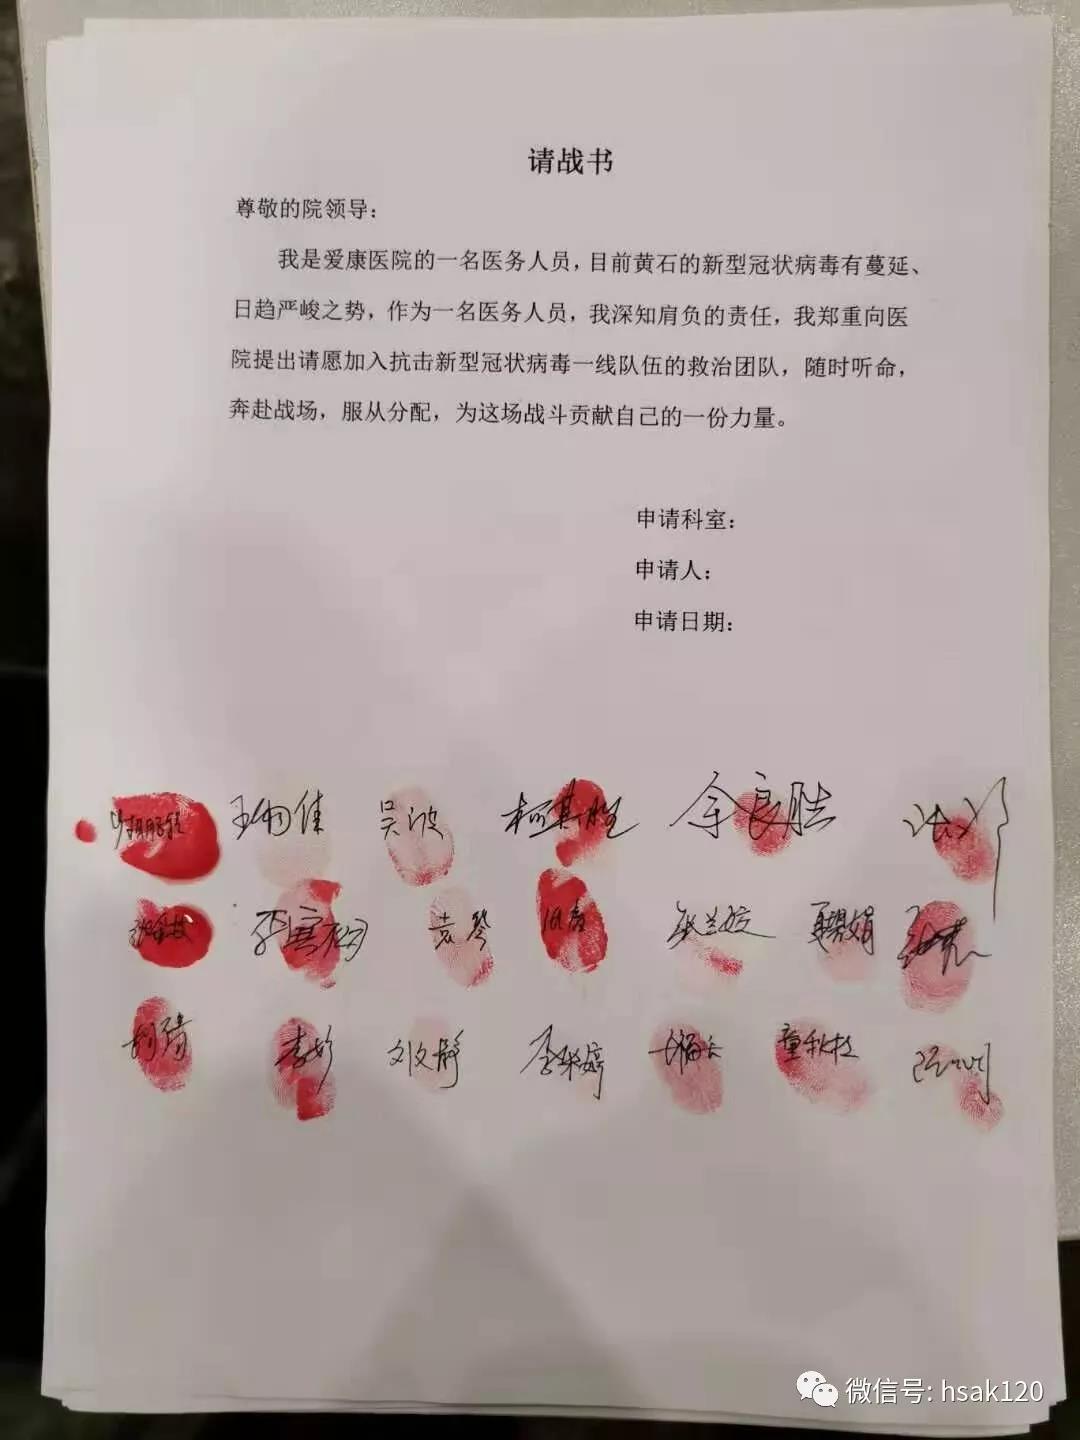 请战书
尊敬的院领导：
我是爱康医院的一名医务人员，目前黄石的新型冠状病毒有蔓延、
日趋严峻之势，作为一名医务人员，我深知肩负的责任，我郑重向医
院提出请愿加入抗击新型冠状病毒一线队伍的救治团队，随时听命，
奔赴战场，服从分配，为这场战斗贡献自己的一份力量。
申请科室：
申请人：
申请日期：
吴波 柯其胜 余良胜
袁琴
李妙 刘文静 童秋枝
微信号: hsak120